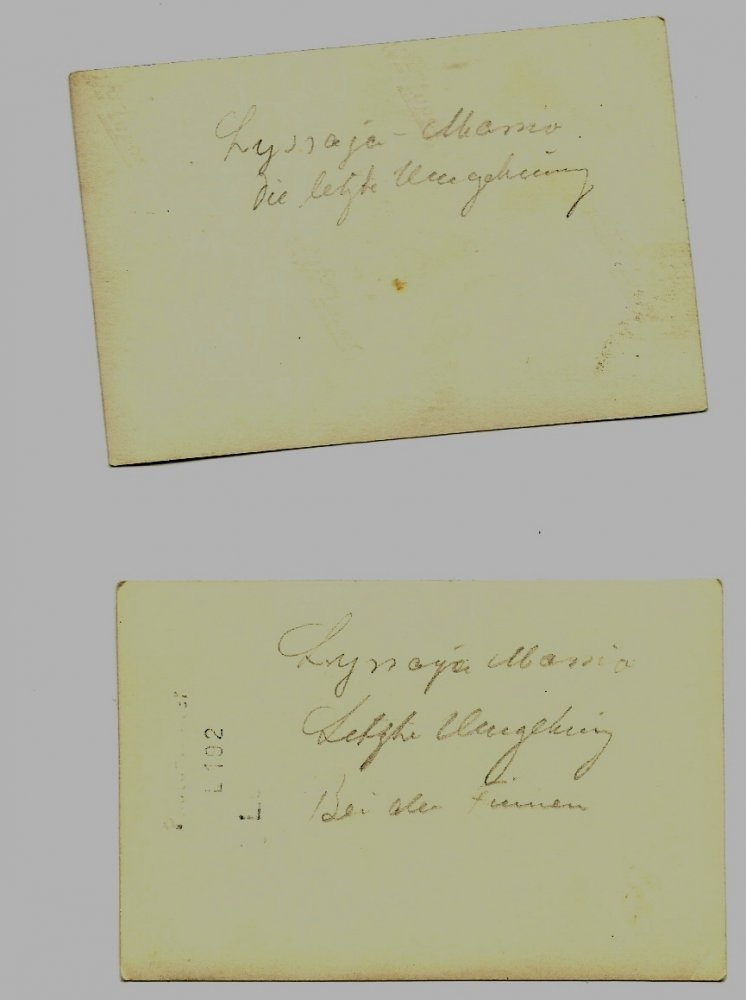 Lyssaja - Massio
die letzte Umgebung
Lyssaja Massio
Letzte Umgebung
Bei den Finnen
L 102
L